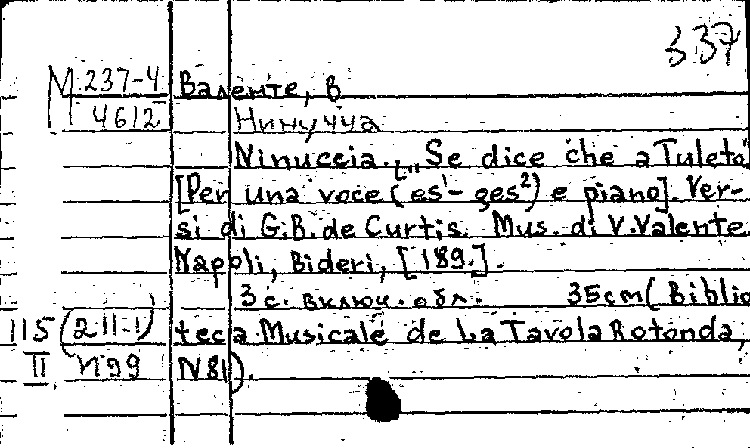 337
М 237-4 Валенте, В
4612 Нинучча
Ninuccia. [„Se dice che a Tuleto"
[Per una voce (es¹- ges²) e piano]. Ver-
si di G.B. de Curtis. Mus. di V. Valente
Napoli, Bideri, [189.].
3 с. включ. обл. 35cm (Biblio
115 (211-1) teca Musicale de La Tavola Rotonda,
II N99 N81).